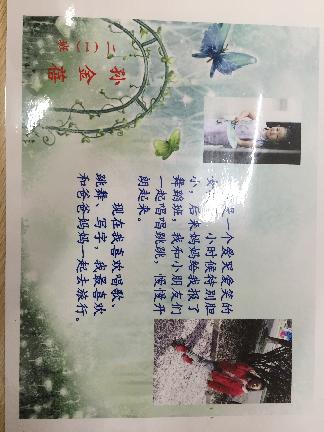 孙金蓓
二（一）班
是一个爱哭爱笑的
女，小时候特别胆
小，后来妈妈给我报了
舞蹈班，我和小朋友们
一起唱唱跳跳，慢慢开
朗起来。
现在我喜欢唱歌、
跳舞、写字，我最喜欢
和爸爸妈妈一起去旅行。